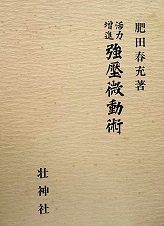 肥田春充著
活力増進
強壓微動術
壮神社